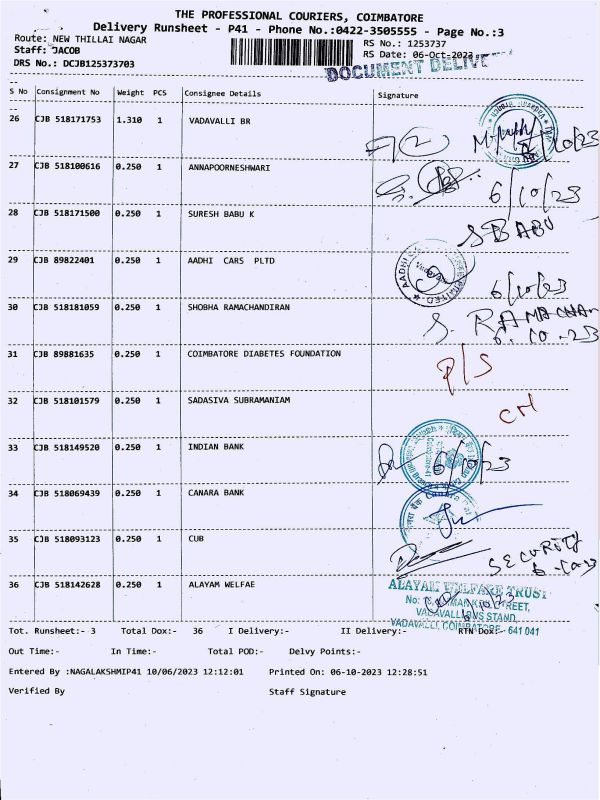 THE PROFESSIONAL COURIERS, COIMBATORE
Delivery Runsheet - P41 - Phone No.:0422-3505555 - Page No.:3
Route: NEW THILLAI NAGAR
RS No.: 1253737
Staff: JACOB
RS Date: 06-Oct-2023
DRS No.: DCJB125373703
DOCUMENT DELIVE
S No Consignment No Weight PCS Consignee Details Signature
26 CJB 518171753 1.310 1 VADAVALLI BR
27 CJB 518100616 0.250 1 ANNAPOORNESHWARI 6/10/23
28 CJB 518171500 0.250 1 SURESH BABU K S BABU
29 CJB 89822401 0.250 1 AADHI CARS PLTD 6/10/23
30 CJB 518181059 0.250 1 SHOBHA RAMACHANDIRAN S. RAMACHAN
6.10.23
31 CJB 89881635 0.250 1 COIMBATORE DIABETES FOUNDATION P/S
32 CJB 518101579 0.250 1 SADASIVA SUBRAMANIAM CH
33 CJB 518149520 0.250 1 INDIAN BANK 6/10/23
34 CJB 518069439 0.250 1 CANARA BANK
35 CJB 518093123 0.250 1 CUB SECURITY
36 CJB 518142628 0.250 1 ALAYAM WELFAE ALAYAM WELFARE TRUST
VADAVALLI BUS STAND,
VADAVALLI, COIMBATORE - 641 041
Tot. Runsheet:- 3 Total Dox:- 36 I Delivery:- II Delivery:- RTN Dox:-
Out Time:- In Time:- Total POD:- Delvy Points:-
Entered By :NAGALAKSHMIP41 10/06/2023 12:12:01 Printed On: 06-10-2023 12:28:51
Verified By Staff Signature